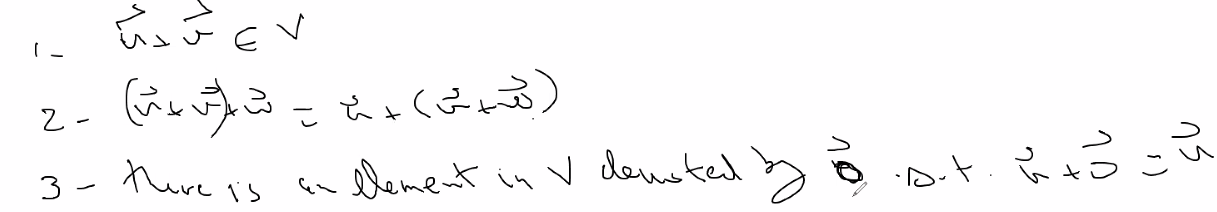 1- u⃗+v⃗ ∈ V
2- (u⃗+v⃗)+w⃗ = u⃗+(v⃗+w⃗)
3- there is an element in V denoted by 0⃗ .s.t. u⃗+0⃗ = u⃗